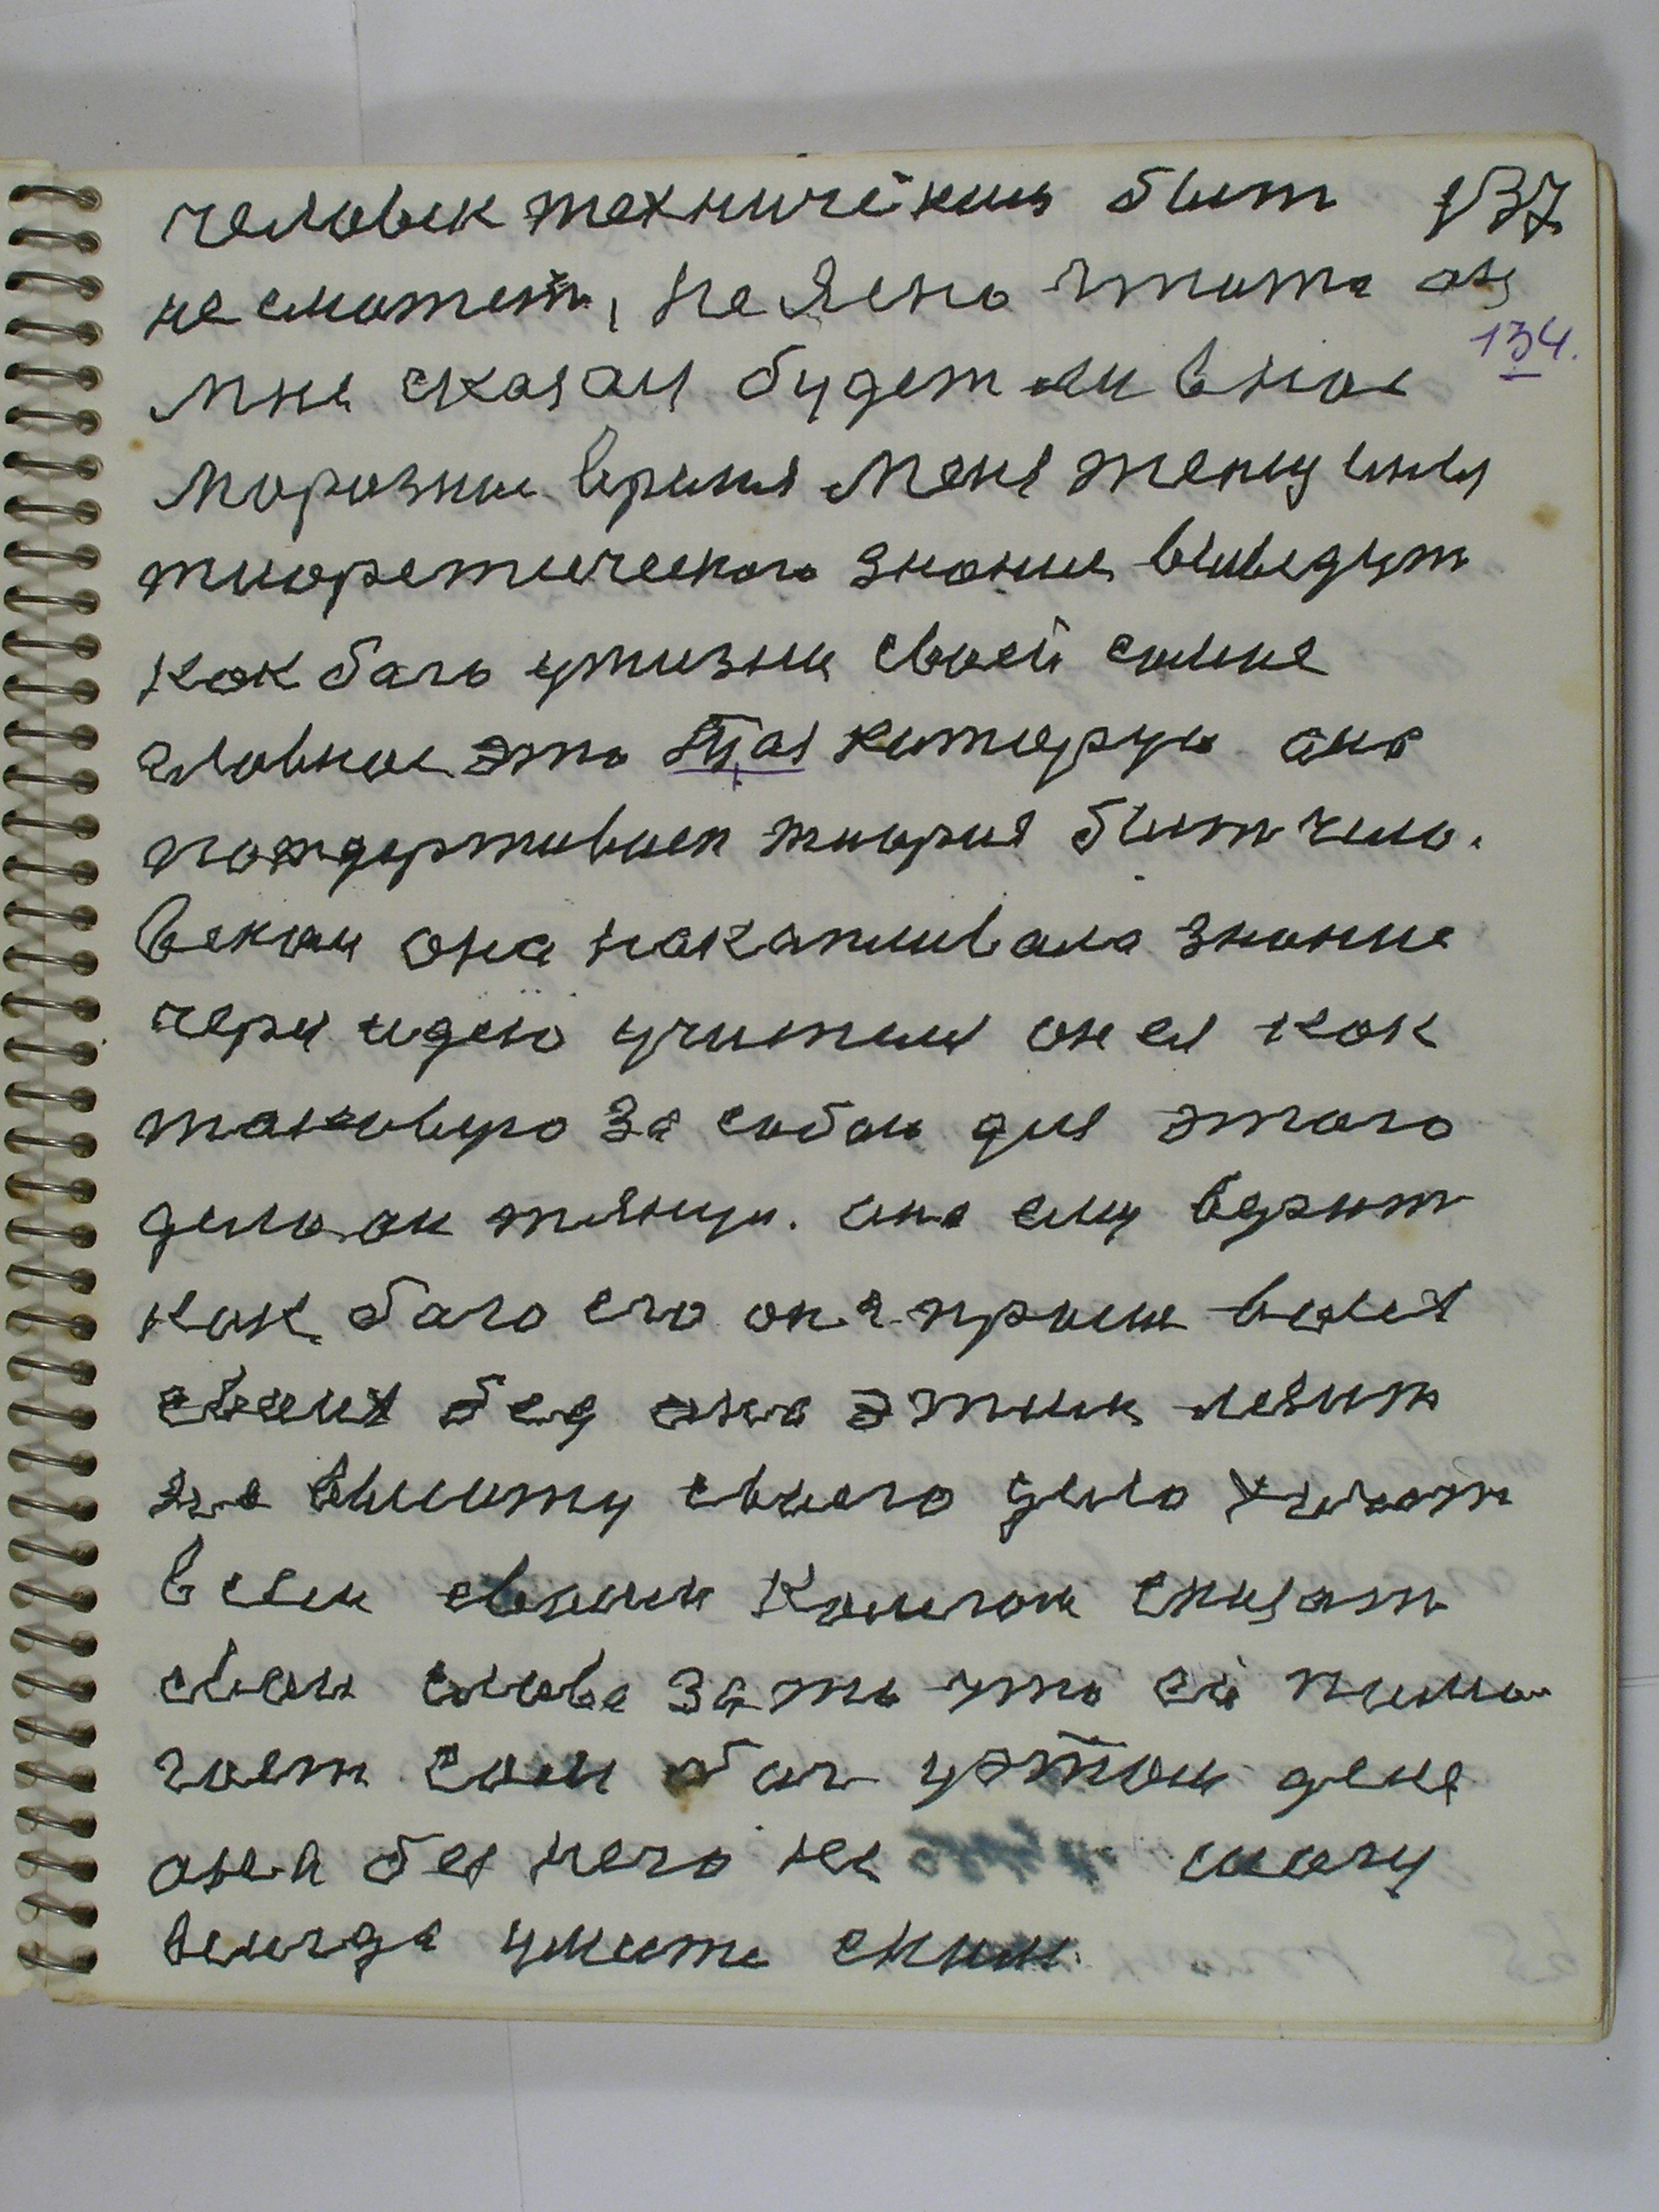 человек технический быт 137
не сможет, не Ясно что то он
134.
мне сказал будет ли вное
морозное время меня женщины
тиоретического знания выведут
как бога ужизни своей самое
главное это которую она
пождерживает тиория быть чело-
веком она накапливала знание
через идею учителя он ея как
таковую за собою для этого
дела он тянул. она ему верит
как бога его она просит
своих бед она этим лезит
на высоту своего дела хочет
всем своим сказат
свои слова за то что ей пома-
гает сам бог уэтом деле
она без него не могу
всигда ужити сним.